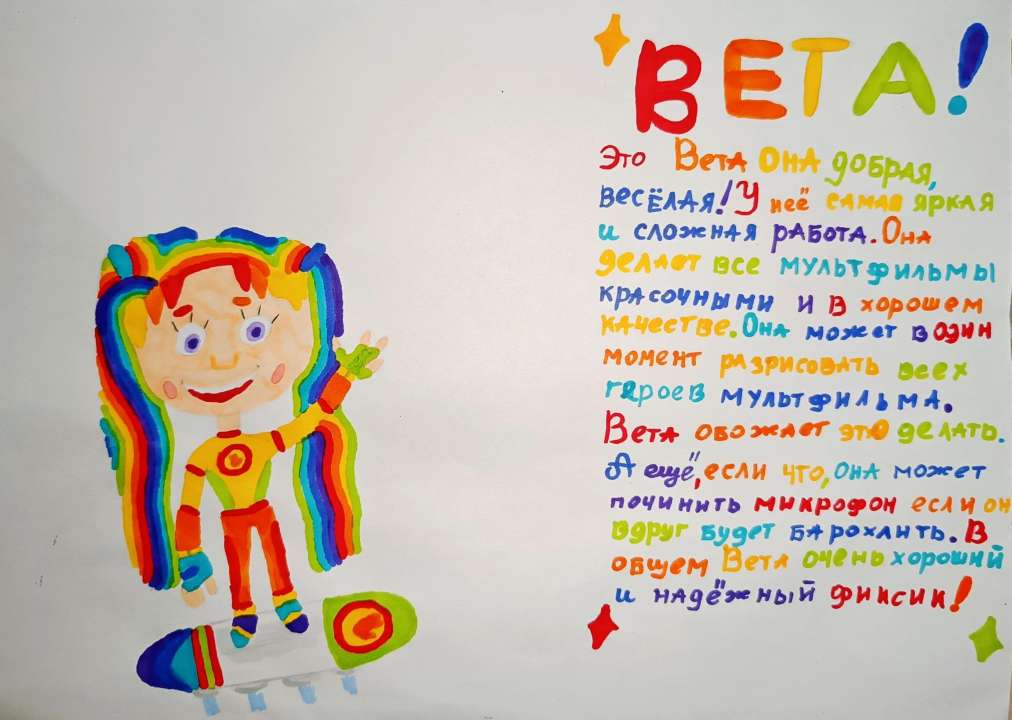 ВЕТА!
Это Вета Она добрая,
весёлая! У неё самая яркая
и сложная работа. Она
делает все мультфильмы
красочными и в хорошем
качестве. Она может в один
момент разрисовать всех
героев мультфильма.
Вета обожает это делать.
А ещё, если что, она может
починить микрофон если он
вдруг будет барохлить. В
общем Вета очень хороший
и надёжный фиксик!